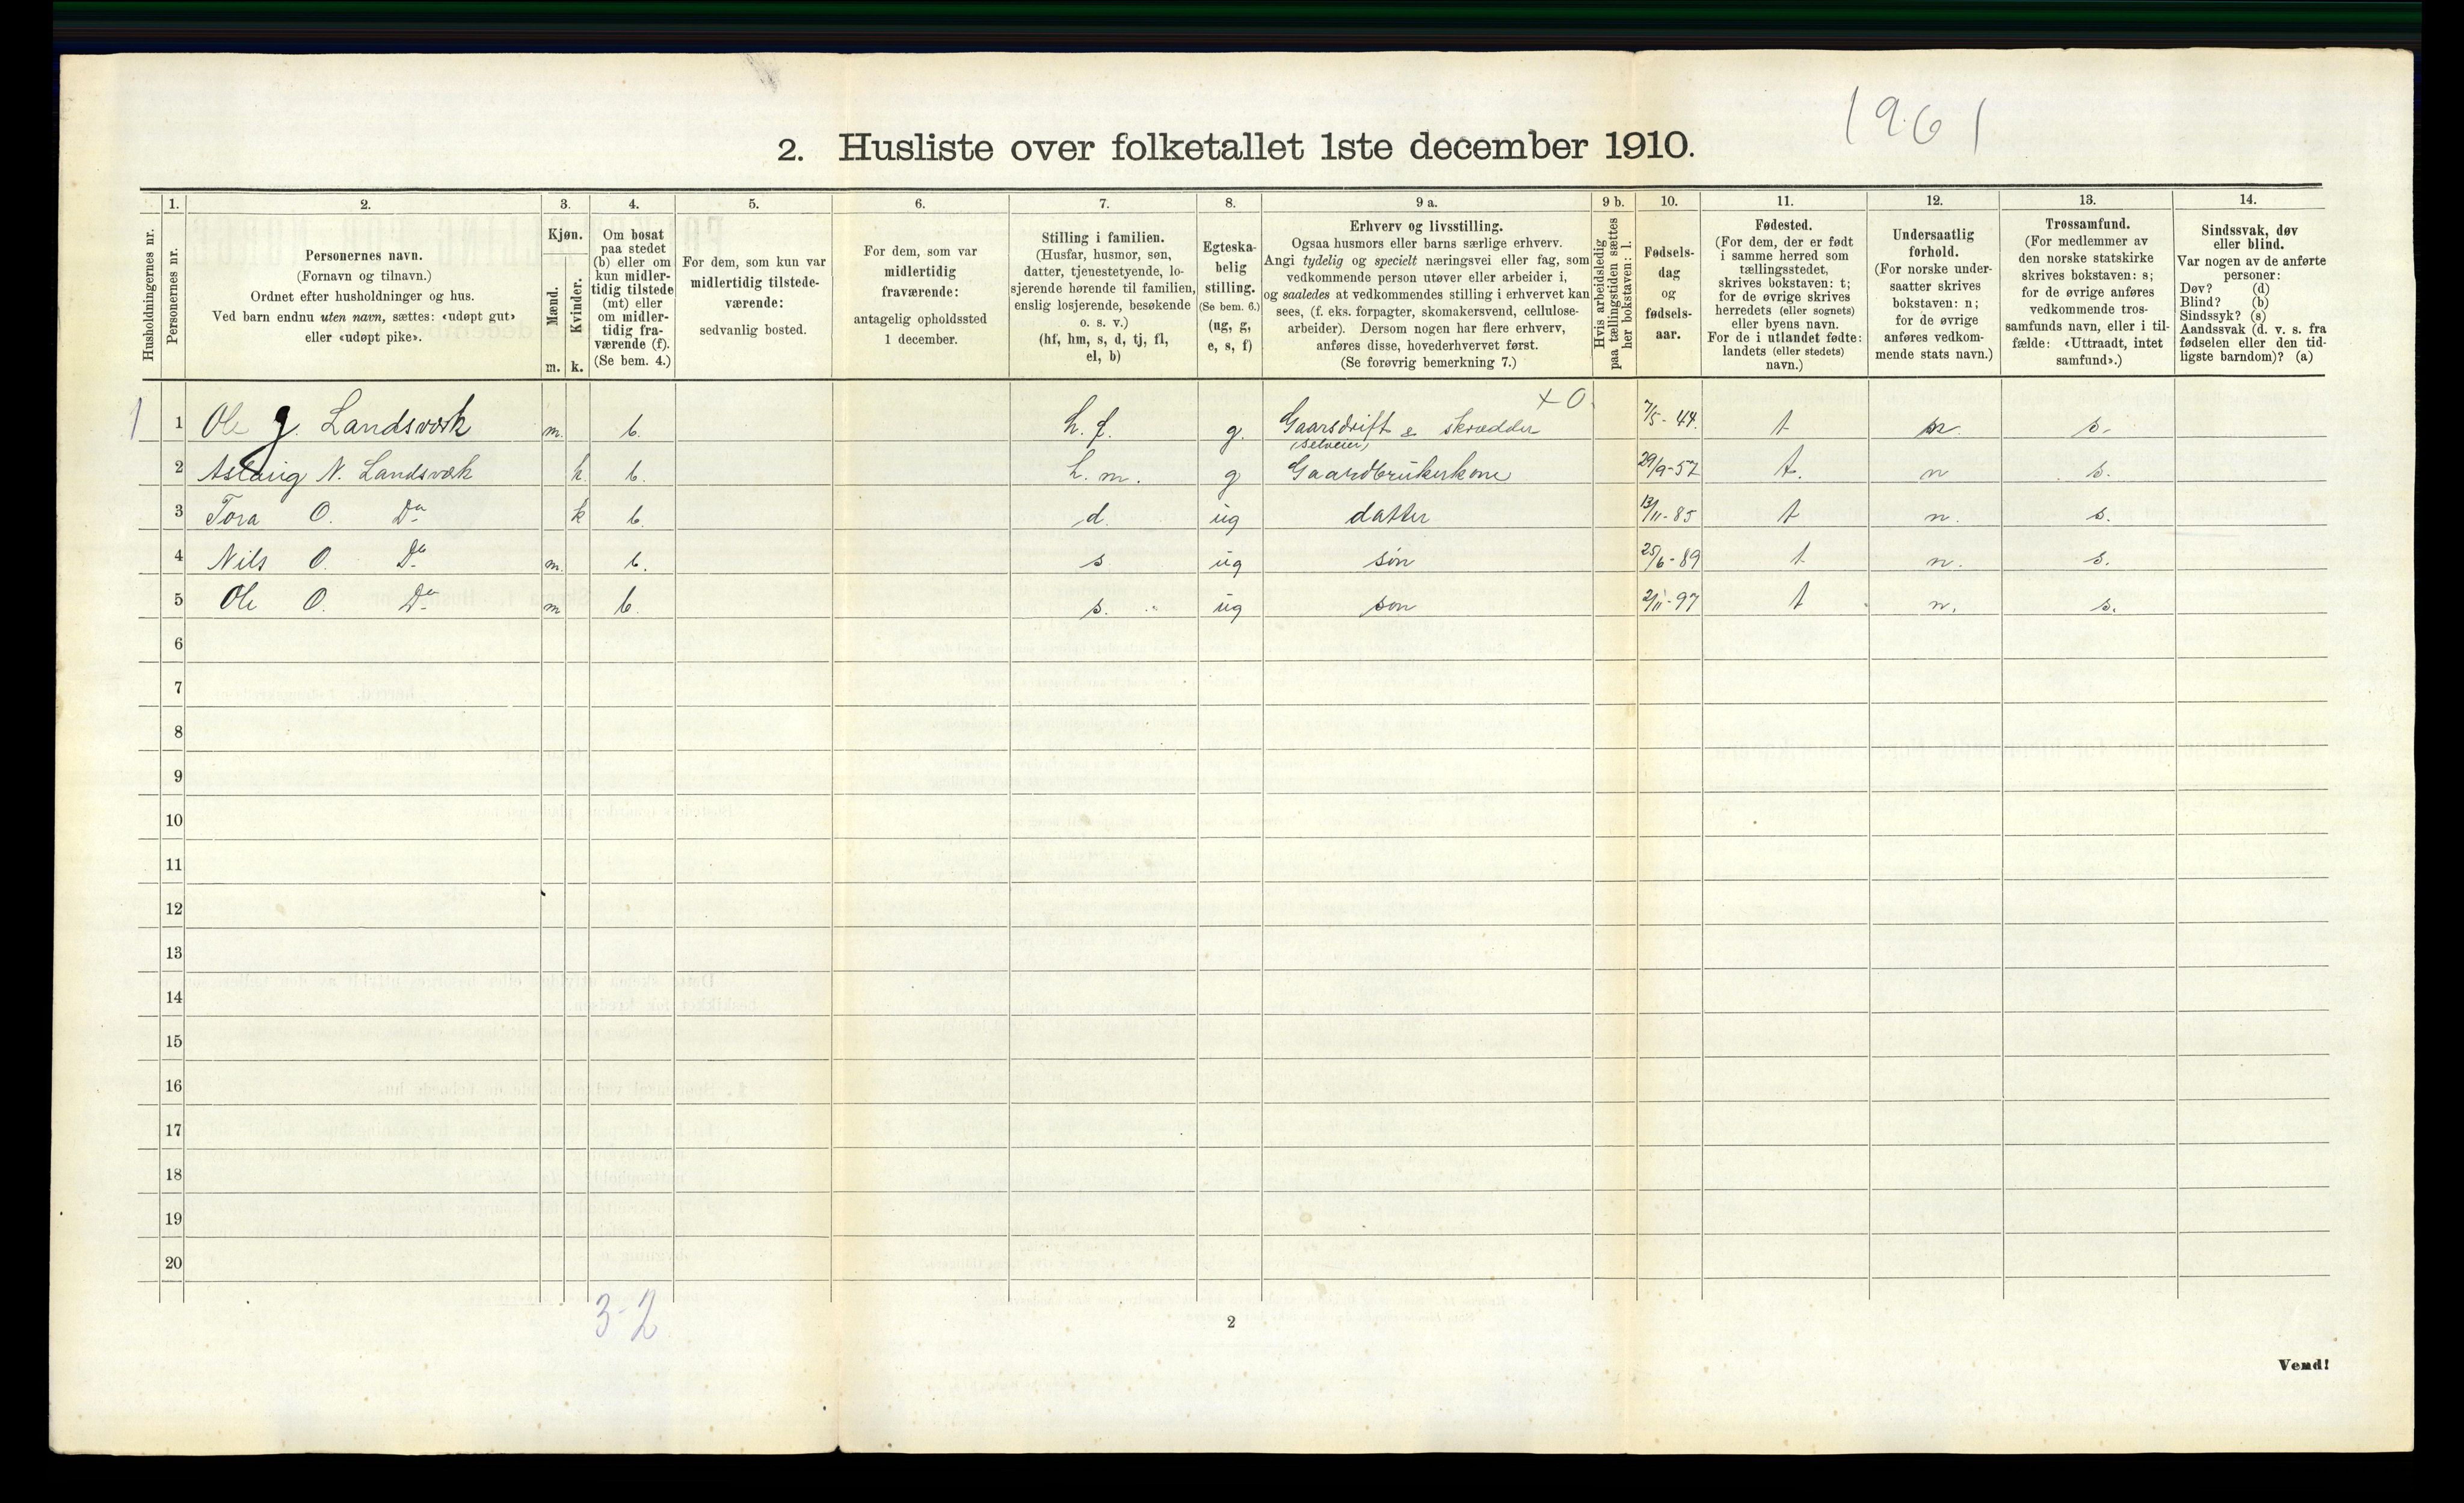 1961
2. Husliste over folketallet 1ste december 1910.
Husholdningernes nr.
1.
Personernes nr.
2.
Personernes navn.
(Fornavn og tilnavn.)
Ordnet efter husholdninger og hus.
Ved barn endnu uten navn, sættes: «udøpt gut»
eller «udøpt pike».
3.
Kjøn.
Mænd.
Kvinder.
m. k.
4.
Om bosat
paa stedet
(b) eller om
kun midler-
tidig tilstede
(mt) eller
om midler-
tidig fra-
værende (f).
(Se bem. 4.)
5.
For dem, som kun var
midlertidig tilstede-
værende:
sedvanlig bosted.
6.
For dem, som var
midlertidig
fraværende:
antagelig opholdssted
1 december.
7.
Stilling i familien.
(Husfar, husmor, søn,
datter, tjenestetyende, lo-
sjerende hørende til familien,
enslig losjerende, besøkende
o. s. v.)
(hf, hm, s, d, tj, fl,
el, b)
8.
Egteska-
belig
stilling.
(Se bem. 6.)
(ug, g,
e, s, f)
9 a.
Erhverv og livsstilling.
Ogsaa husmors eller barns særlige erhverv.
Angi tydelig og specielt næringsvei eller fag, som
vedkommende person utøver eller arbeider i,
og saaledes at vedkommendes stilling i erhvervet kan
sees, (f. eks. forpagter, skomakersvend, cellulose-
arbeider). Dersom nogen har flere erhverv,
anføres disse, hovederhvervet først.
(Se forøvrig bemerkning 7.)
9 b.
Hvis arbeidsledig
paa tællingstiden sættes
her bokstaven: l.
10.
Fødsels-
dag
og
fødsels-
aar.
11.
Fødested.
(For dem, der er født
i samme herred som
tællingsstedet,
skrives bokstaven: t;
for de øvrige skrives
herredets (eller sognets)
eller byens navn.
For de i utlandet fødte:
landets (eller stedets)
navn.)
12.
Undersaatlig
forhold.
(For norske under-
saatter skrives
bokstaven: n;
for de øvrige
anføres vedkom-
mende stats navn.)
13.
Trossamfund.
(For medlemmer av
den norske statskirke
skrives bokstaven: s;
for de øvrige anføres
vedkommende tros-
samfunds navn, eller i til-
fælde: «Uttraadt, intet
samfund».)
14.
Sindssvak, døv
eller blind.
Var nogen av de anførte
personer:
Døv? (d)
Blind? (b)
Sindssyk? (s)
Aandssvak (d. v. s. fra
fødselen eller den tid-
ligste barndom)? (a)
x 0.
1 1 Ole J. Landsværk m. b. h. f. g. Gaarsdrift & skrædder 7/5-44. t n. s.
(Selveier)
2 Aslaug N. Landsværk k. b. h. m. g Gaardbrukerkone 29/9-57 t. n s.
3 Tora O. Do k b. d. ug datter 13/11-85 t n. s.
4 Nils O. Do m. b. s ug søn 25/6-89 t n. s.
5 Ole O. Do m b. s. ug søn 2/11-97 t n. s.
6
7
8
9
10
11
12
13
14
15
16
17
18
19
20
3-2
2
Vend!